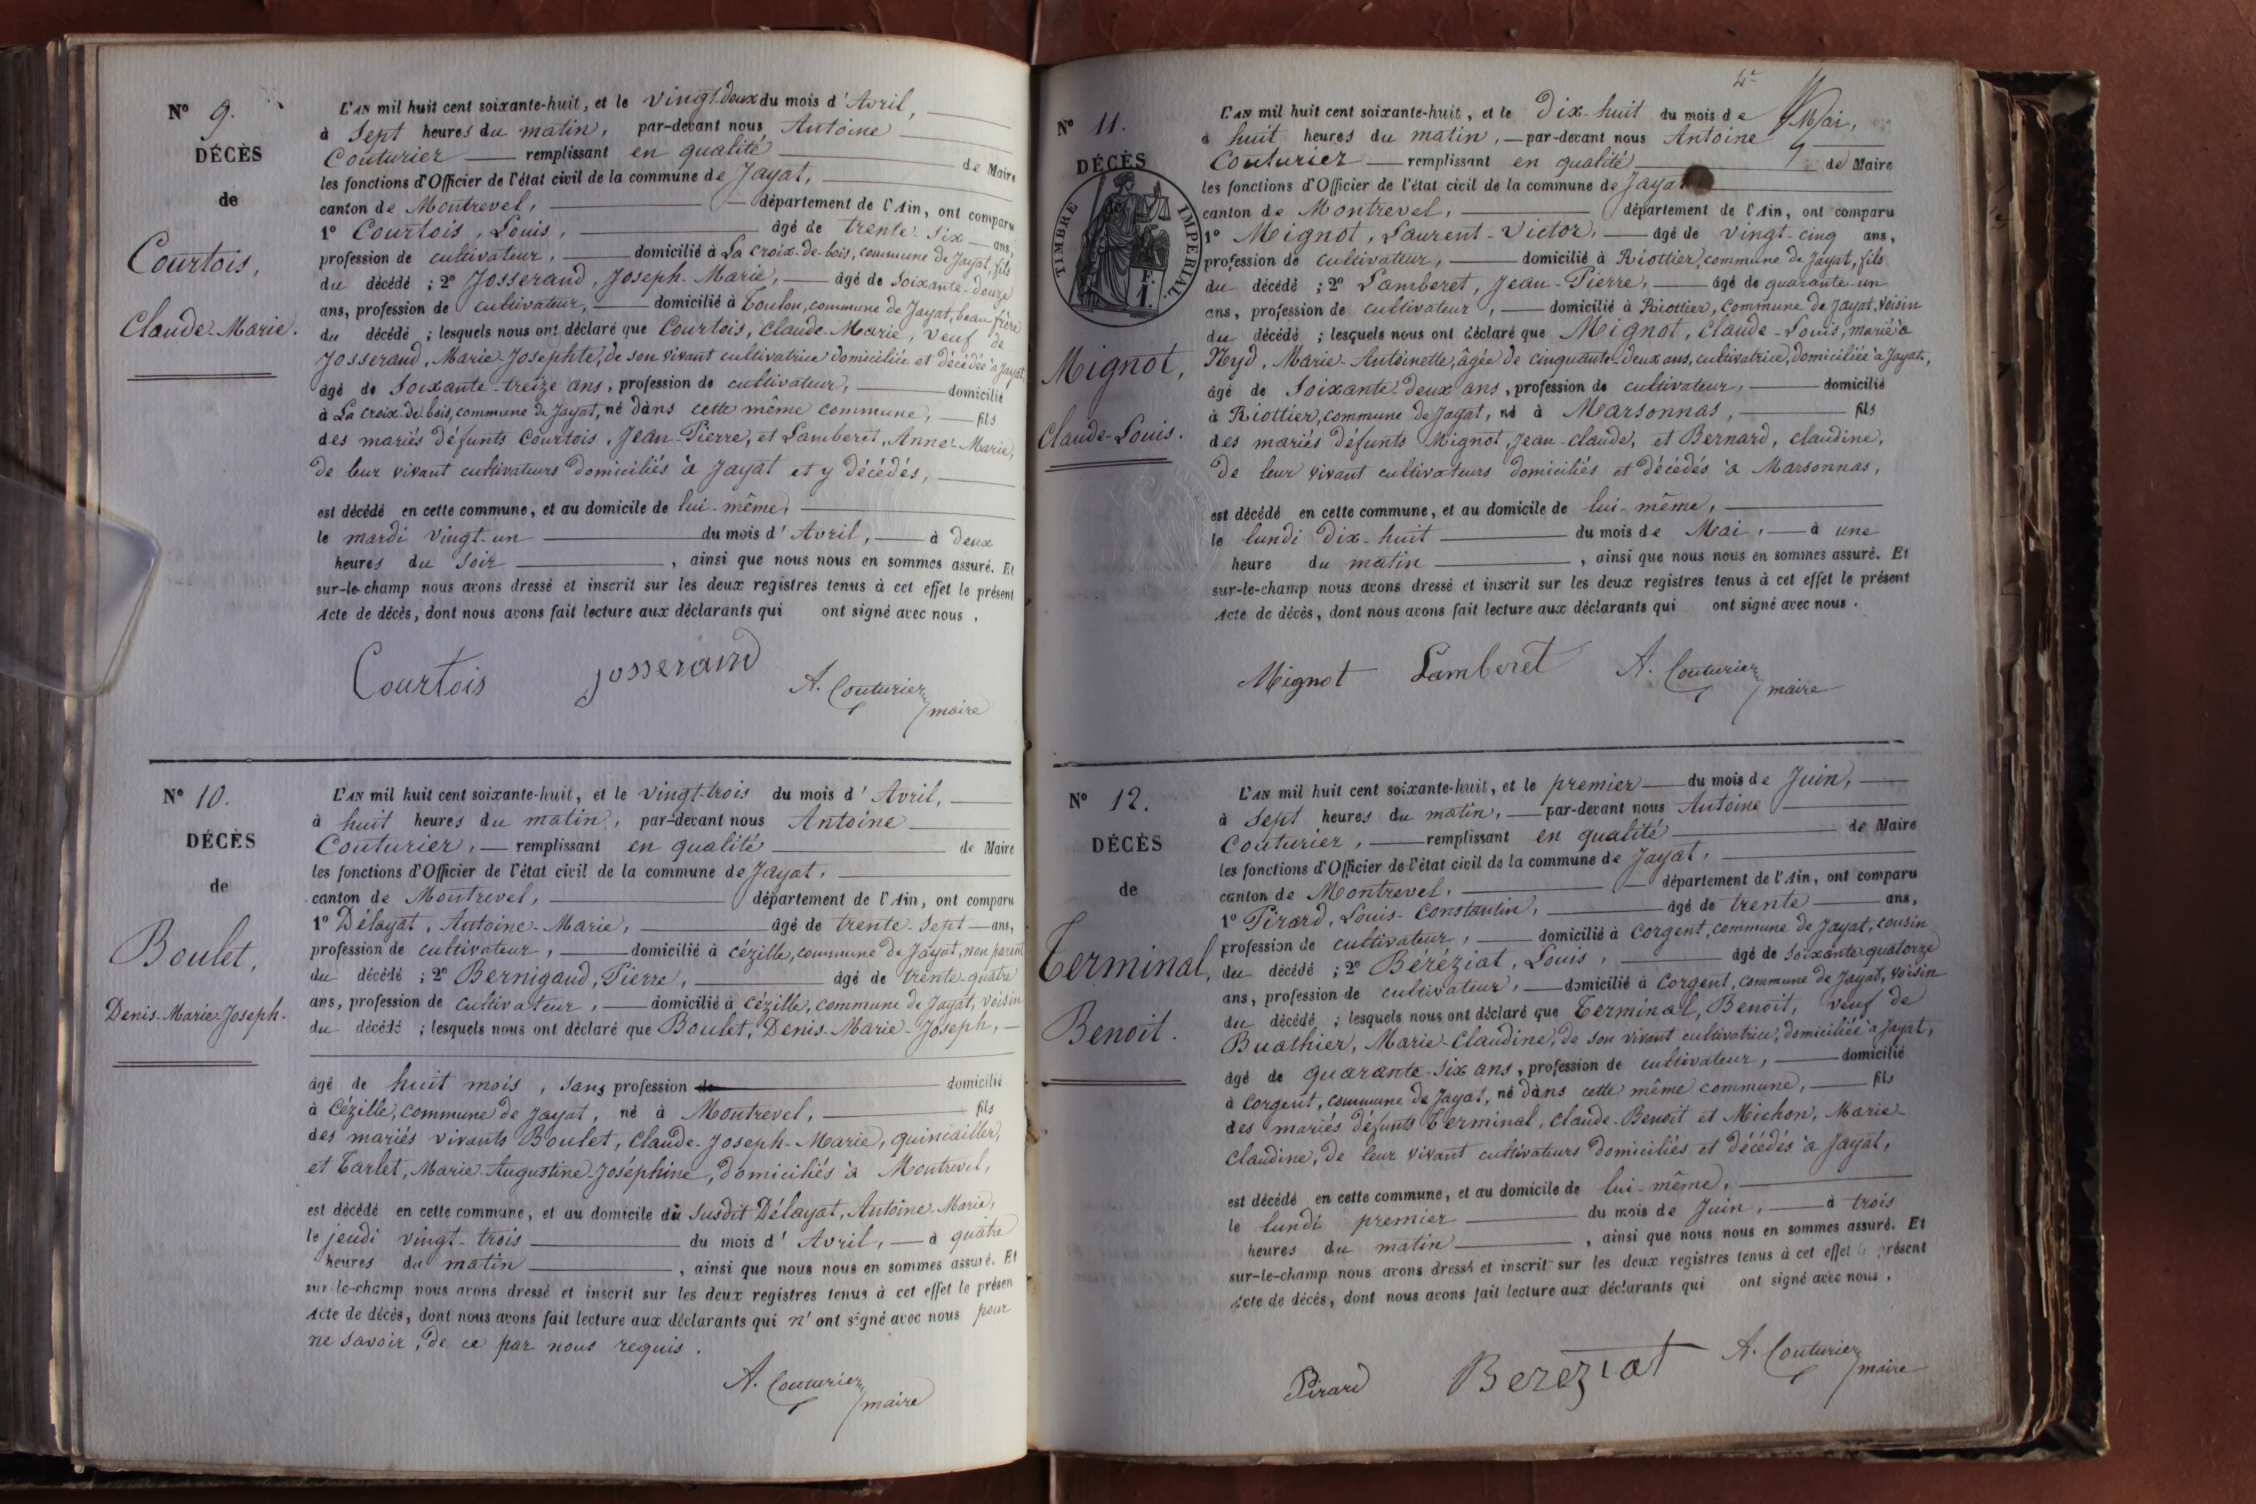 N° 9.
DÉCÈS
de
Courtois,
Claude-Marie.
L'AN mil huit cent soixante-huit, et le vingt-deux du mois d'Avril,
à sept heures du matin, par-devant nous Antoine
Couturier remplissant en qualité de Maire
les fonctions d'Officier de l'état civil de la commune de Jayat,
canton de Montrevel, département de l'Ain, ont comparu
1° Courtois, Louis, âgé de trente-six ans,
profession de cultivateur, domicilié à La croix-de-bois, commune de Jayat, fils
du décédé ; 2° Josserand, Joseph-Marie, âgé de soixante-douze
ans, profession de cultivateur, domicilié à Toulon, commune de Jayat, beau-frère
du décédé ; lesquels nous ont déclaré que Courtois, Claude-Marie, veuf de
Josserand, Marie-Josephte, de son vivant cultivatrice domiciliée et décédée à Jayat,
âgé de soixante-treize ans, profession de cultivateur, domicilié
à La croix-de-bois, commune de Jayat, né dans cette même commune, fils
des mariés défunts Courtois, Jean-Pierre, et Lamberet, Anne-Marie,
de leur vivant cultivateurs domiciliés à Jayat et y décédés,
est décédé en cette commune, et au domicile de lui-même,
le mardi vingt-un du mois d'Avril, à deux
heures du soir, ainsi que nous nous en sommes assuré. Et
sur-le-champ nous avons dressé et inscrit sur les deux registres tenus à cet effet le présent
Acte de décès, dont nous avons fait lecture aux déclarants qui ont signé avec nous.
Courtois Josserand A. Couturier
maire
N° 10.
DÉCÈS
de
Boulet,
Denis-Marie-Joseph.
L'AN mil huit cent soixante-huit, et le vingt-trois du mois d'Avril,
à huit heures du matin, par-devant nous Antoine
Couturier, remplissant en qualité de Maire
les fonctions d'Officier de l'état civil de la commune de Jayat,
canton de Montrevel, département de l'Ain, ont comparu
1° Délayat, Antoine-Marie, âgé de trente-sept ans,
profession de cultivateur, domicilié à Cézille, commune de Jayat, non parent
du décédé ; 2° Bernigaud, Pierre, âgé de trente-quatre
ans, profession de cultivateur, domicilié à Cézille, commune de Jayat, voisin
du décédé ; lesquels nous ont déclaré que Boulet, Denis-Marie-Joseph,
âgé de huit mois, sans profession de domicilié
à Cézille, commune de Jayat, né à Montrevel, fils
des mariés vivants Boulet, Claude-Joseph-Marie, quincailler,
et Tarlet, Marie-Augustine-Joséphine, domiciliés à Montrevel,
est décédé en cette commune, et au domicile du susdit Délayat, Antoine-Marie,
le jeudi vingt-trois du mois d'Avril, à quatre
heures du matin, ainsi que nous nous en sommes assuré. Et
sur-le-champ nous avons dressé et inscrit sur les deux registres tenus à cet effet le présen
Acte de décès, dont nous avons fait lecture aux déclarants qui n'ont signé avec nous pour
ne savoir, de ce par nous requis.
A. Couturier
maire
N° 11.
DÉCÈS
TIMBRE IMPERIAL.
F.
1.
Mignot,
Claude-Louis.
L'AN mil huit cent soixante-huit, et le dix-huit du mois de Mai,
à huit heures du matin, par-devant nous Antoine
Couturier remplissant en qualité de Maire
les fonctions d'Officier de l'état civil de la commune de Jayat
canton de Montrevel, département de l'Ain, ont comparu
1° Mignot, Laurent-Victor, âgé de vingt-cinq ans,
profession de cultivateur, domicilié à Riottier, commune de Jayat, fils
du décédé ; 2° Lamberet, Jean-Pierre, âgé de quarante-un
ans, profession de cultivateur, domicilié à Riottier, commune de Jayat, voisin
du décédé ; lesquels nous ont déclaré que Mignot, Claude-Louis, marié à
Nyd, Marie-Antoinette, âgée de cinquante-deux ans, cultivatrice, domiciliée à Jayat,
âgé de soixante-deux ans, profession de cultivateur, domicilié
à Riottier, commune de Jayat, né à Marsonnas, fils
des mariés défunts Mignot, Jean-Claude, et Bernard, Claudine,
de leur vivant cultivateurs domiciliés et décédés à Marsonnas,
est décédé en cette commune, et au domicile de lui-même,
le lundi dix-huit du mois de Mai, à une
heure du matin, ainsi que nous nous en sommes assuré. Et
sur-le-champ nous avons dressé et inscrit sur les deux registres tenus à cet effet le présent
Acte de décès, dont nous avons fait lecture aux déclarants qui ont signé avec nous.
Mignot Lamberet A. Couturier
maire
N° 12.
DÉCÈS
de
Terminal,
Benoit.
L'AN mil huit cent soixante-huit, et le premier du mois de Juin,
à sept heures du matin, par-devant nous Antoine
Couturier, remplissant en qualité de Maire
les fonctions d'Officier de l'état civil de la commune de Jayat,
canton de Montrevel, département de l'Ain, ont comparu
1° Pirard, Louis-Constantin, âgé de trente ans,
profession de cultivateur, domicilié à Corgent, commune de Jayat, cousin
du décédé ; 2° Béréziat, Louis, âgé de soixante-quatorze
ans, profession de cultivateur, domicilié à Corgent, commune de Jayat, voisin
du décédé ; lesquels nous ont déclaré que Terminal, Benoit, veuf de
Buathier, Marie-Claudine, de son vivant cultivatrice, domiciliée à Jayat,
âgé de quarante-six ans, profession de cultivateur, domicilié
à Corgent, commune de Jayat, né dans cette même commune, fils
des mariés défunts Terminal, Claude-Benoit et Michon, Marie-
Claudine, de leur vivant cultivateurs domiciliés et décédés à Jayat,
est décédé en cette commune, et au domicile de lui-même,
le lundi premier du mois de Juin, à trois
heures du matin, ainsi que nous nous en sommes assuré. Et
sur-le-champ nous avons dressé et inscrit sur les deux registres tenus à cet effet le présent
Acte de décès, dont nous avons fait lecture aux déclarants qui ont signé avec nous.
Pirard Bereziat A. Couturier
maire